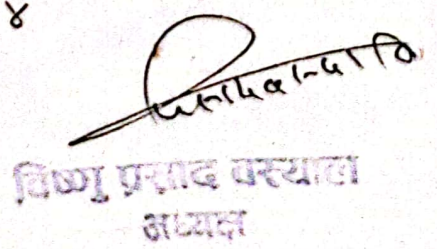 ४
विष्णु प्रसाद वस्याल
अध्यक्ष